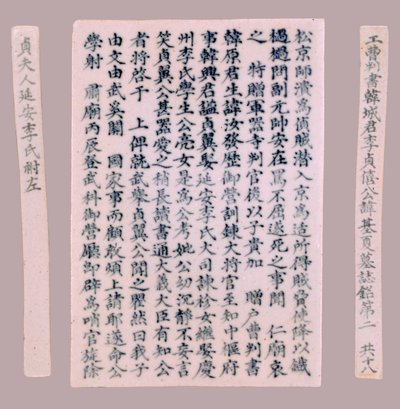 工曹判書韓城君李貞僖公諱基夏墓誌銘第二 共十八
松京師潰爲偵賊潛入京爲适所得賊脅使降以鐵
檛檛問副元帥安在罵不屈遂死之事聞 仁廟哀
之 特贈軍器寺判官後以子貴加 贈戶曹判書
韓原君生諱汝發歷御營訓鍊大將官至知中樞府
事韓興君謚貞翼娶延安李氏大司諫栓女繼娶慶
州李氏學生公亮女是爲公考妣公幼沉靜不妄言
笑貞翼公甚器愛之稍長讀書通大義大臣有知公
者將啓于 上俾就武業貞翼公聞之愕然曰我子
由文由武奚關 國家事而顧敢煩上諸耶遂命公
學射 肅廟丙辰登武科御營廳即辟爲哨官旋除
貞夫人延安李氏祔左